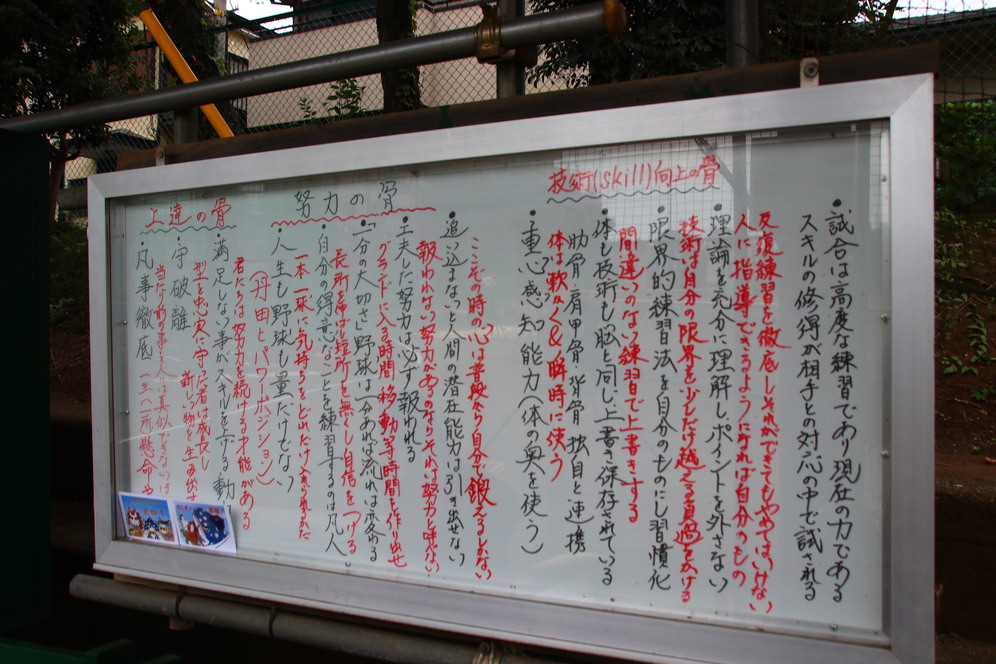 ・試合は高度な練習であり現在の力である
スキルの修得が相手との対応の中で試される
反復練習を徹底しそれができてもやめてはいけない
人に指導できるようになれば自分のもの
・理論を充分に理解しポイントを外さない
技術は自分の限界を少しだけ越える負過をかける
・限界的練習法を自分のものにし習慣化
間違いのない練習で上書きする
・体も技術も脳と同じ上書き保存されている
技術(skill)向上の骨
体は軟らく&瞬時に使う
肋骨・肩甲骨・背骨 独自と連携
・重心感知能力(体の奥を使う)
ここぞの時の心は普段から自分で鍛えるしかない
・追い込まないと人間の潜在能力は引き出せない
報われない努力があるのならそれは努力と呼べない
・工夫した努力は必ず報われる
グランドに入る時間移動等時間を作り出せ
努力の骨
・「一分の大切さ」野球は一分あれば流れは変わる
長所を伸ばし短所を無くし自信をつける
・自分の得意なことを練習するのは凡人
一本一球に気持ちをどれだけ入れられるか
・人生も野球も量だけでない
(丹田とパワーポジション)
君たちは努力を続ける才能がある
・満足しない事がスキルを上げる動
上達の骨
型を忠実に守った者は成長し
新しい物を生み出す
・守破離
当たり前の事を人は真似できない
・凡事徹底 一生(一所)懸命や